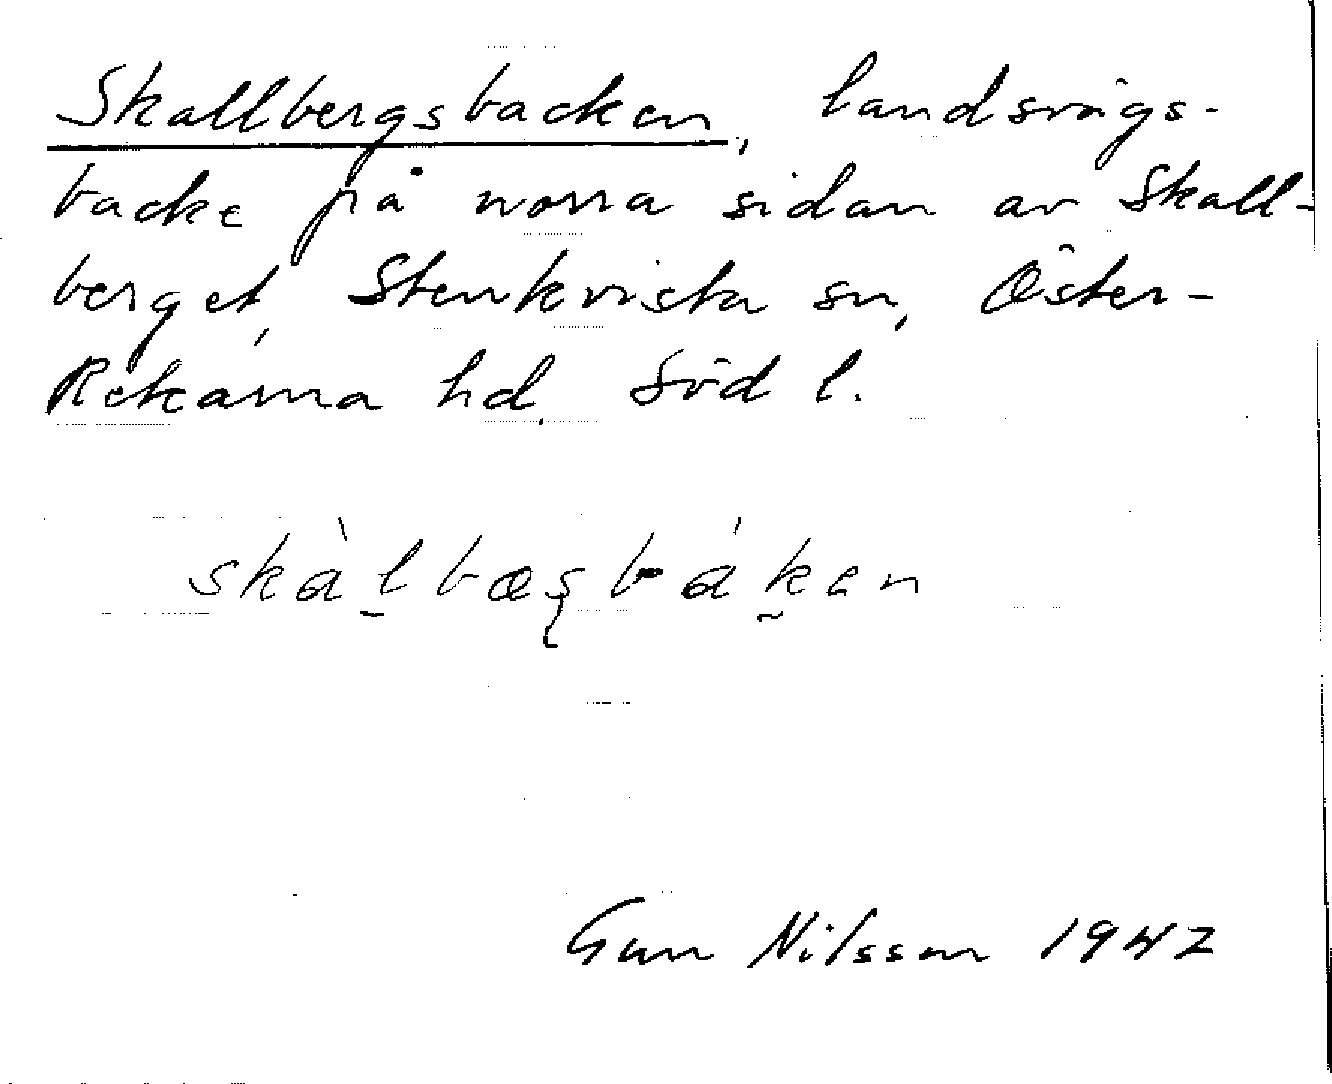 Skallbergsbacken, landsvägs-
backe på norra sidan av Skall-
berget, Stenkvista sn, Öster-
Rekarna hd, Söd l.
skàl̠bæʂbák̰en
Gun Nilsson 1942